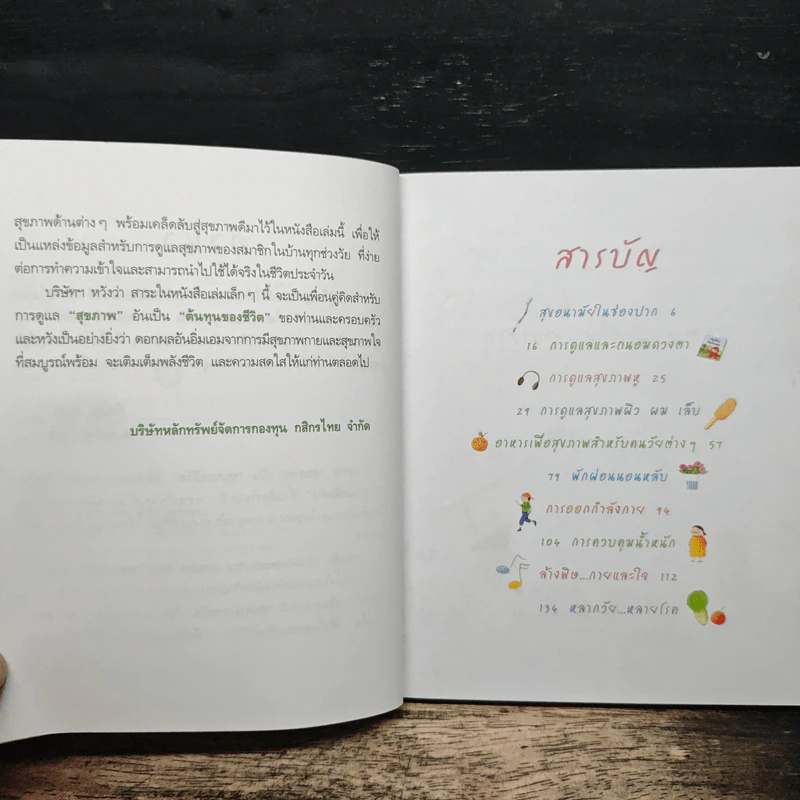 สุขภาพด้านต่างๆ พร้อมเคล็ดลับสู่สุขภาพดีมาไว้ในหนังสือเล่มนี้ เพื่อให้
เป็นแหล่งข้อมูลสำหรับการดูแลสุขภาพของสมาชิกในบ้านทุกช่วงวัย ที่ง่าย
ต่อการทำความเข้าใจและสามารถนำไปใช้ได้จริงในชีวิตประจำวัน
บริษัทฯ หวังว่า สาระในหนังสือเล่มเล็กๆ นี้ จะเป็นเพื่อนคู่คิดสำหรับ
การดูแล “สุขภาพ” อันเป็น “ต้นทุนของชีวิต” ของท่านและครอบครัว
และหวังเป็นอย่างยิ่งว่า ดอกผลอันอิ่มเอมจากการมีสุขภาพกายและสุขภาพใจ
ที่สมบูรณ์พร้อม จะเติมเต็มพลังชีวิต และความสดใสให้แก่ท่านตลอดไป
บริษัทหลักทรัพย์จัดการกองทุน กสิกรไทย จำกัด
สารบัญ
สุขอนามัยในช่องปาก 6
16 การดูแลและถนอมดวงตา
การดูแลสุขภาพหู 25
29 การดูแลสุขภาพผิว ผม เล็บ
อาหารเพื่อสุขภาพสำหรับคนวัยต่างๆ 57
79 พักผ่อนนอนหลับ
การออกกำลังกาย 94
104 การควบคุมน้ำหนัก
ล้างพิษ...กายและใจ 112
134 หลากวัย...หลายโรค